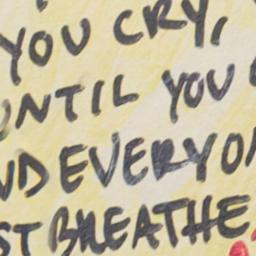 YOU CRY,
UNTIL YOU
ND EVERYO
ST BREATHE